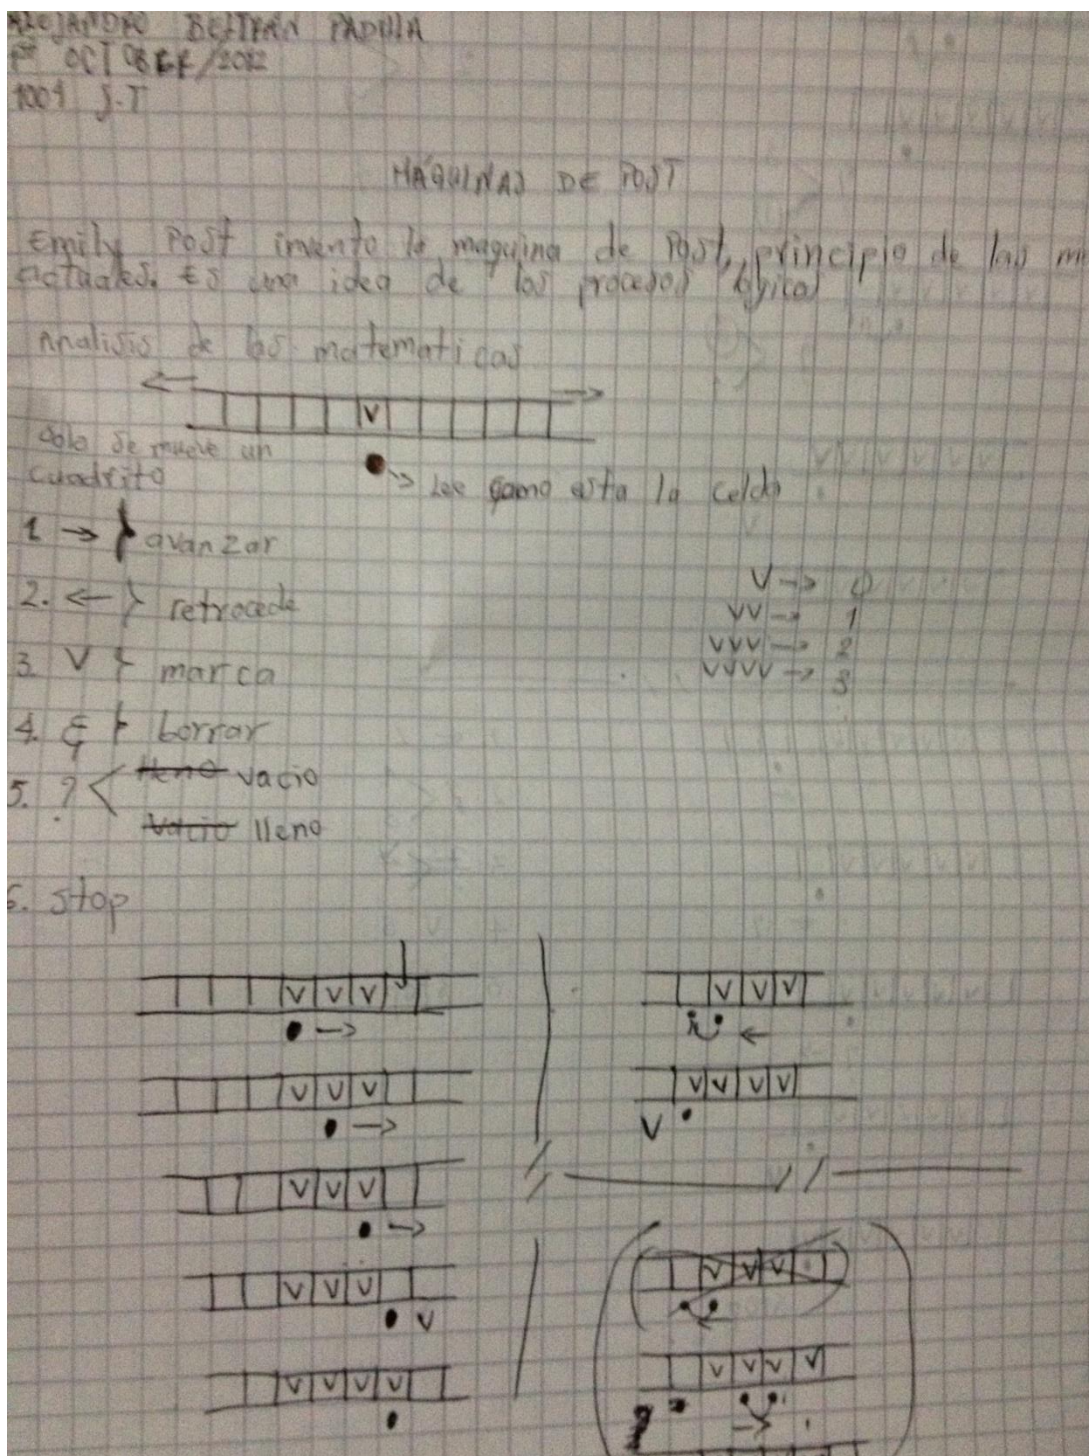 ALEJANDRO BELTRAN PADILLA
OCTUBRE/2012
1001 J.T
MÁQUINAS DE POST
Emily Post invento la maquina de Post, principio de las
actuales. Es una idea de los procesos logicos
Analisis de las matematicas
V
solo se mueve un
cuadrito
→ Lee como esta la celda
1 → } avanzar
2. ← } retrocede
3. V } marca
4. ξ } borrar
5. ? < lleno vacio
vacio lleno
6. stop
V → 0
VV → 1
VVV → 2
VVVV → 3
V V V
→
V V V
→
V V V
→
V V V
V
V V V V
V V V
←
V V V V
V
V V V
V V V V
→